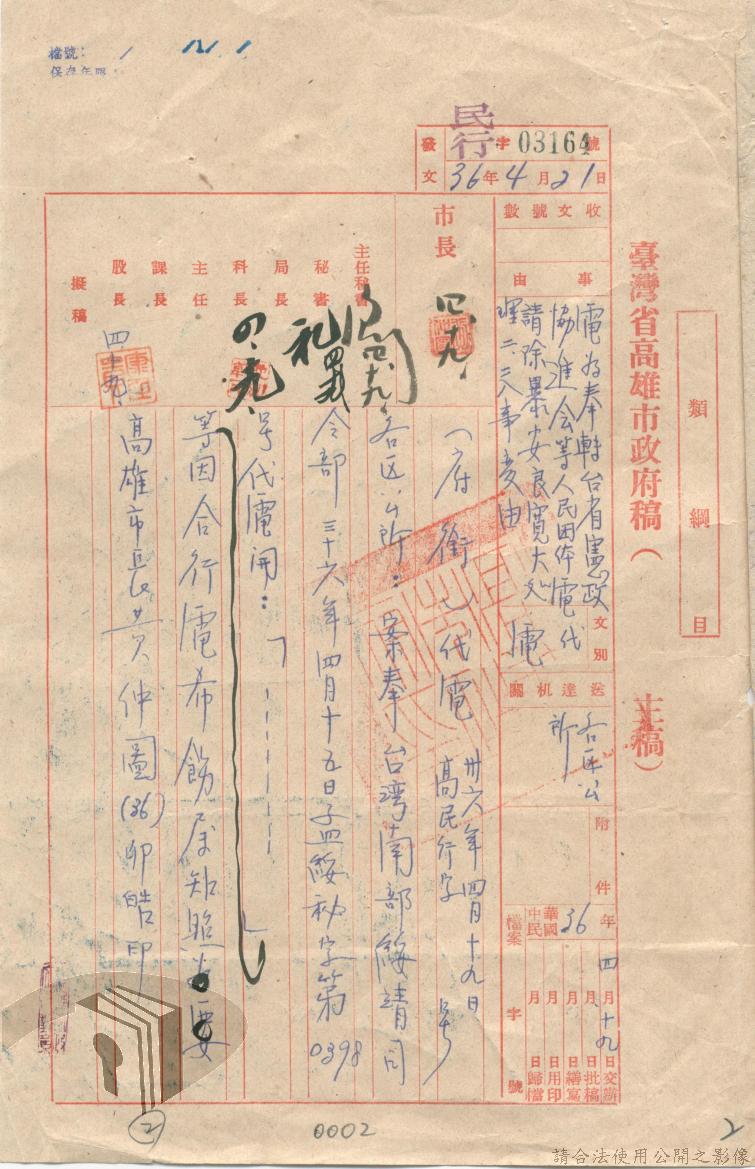 檔號：
保存年限：
民行字03164號
發文 36年4月21日
類綱目
臺灣省高雄市政府稿（主稿）
收文號數
事由
電為奉轉台省憲政
協進会等人民团体電代
請除暴安良寬大处
理二二八事变由
文別
電
送達机關
各区公
所
附件
中華民國36年
四月十九日交辦
月 日批稿
月 日繕寫
月 日用印
月 日歸檔
檔案 字 號
市長
四十九、
主任秘書
秘書
局長
科長
主任
課長
股長
擬稿
（府銜）代電 卅六年四月十九日
高民行字 號
各区公所：案奉台湾南部綏靖司
令部三十六年四月十五日孟綏秘字第0398
号代電開：「 」
等因合行電希飭屬知照為要
高雄市長黄仲圖(36)卯皓印
2
0002
2
請合法使用公開之影像